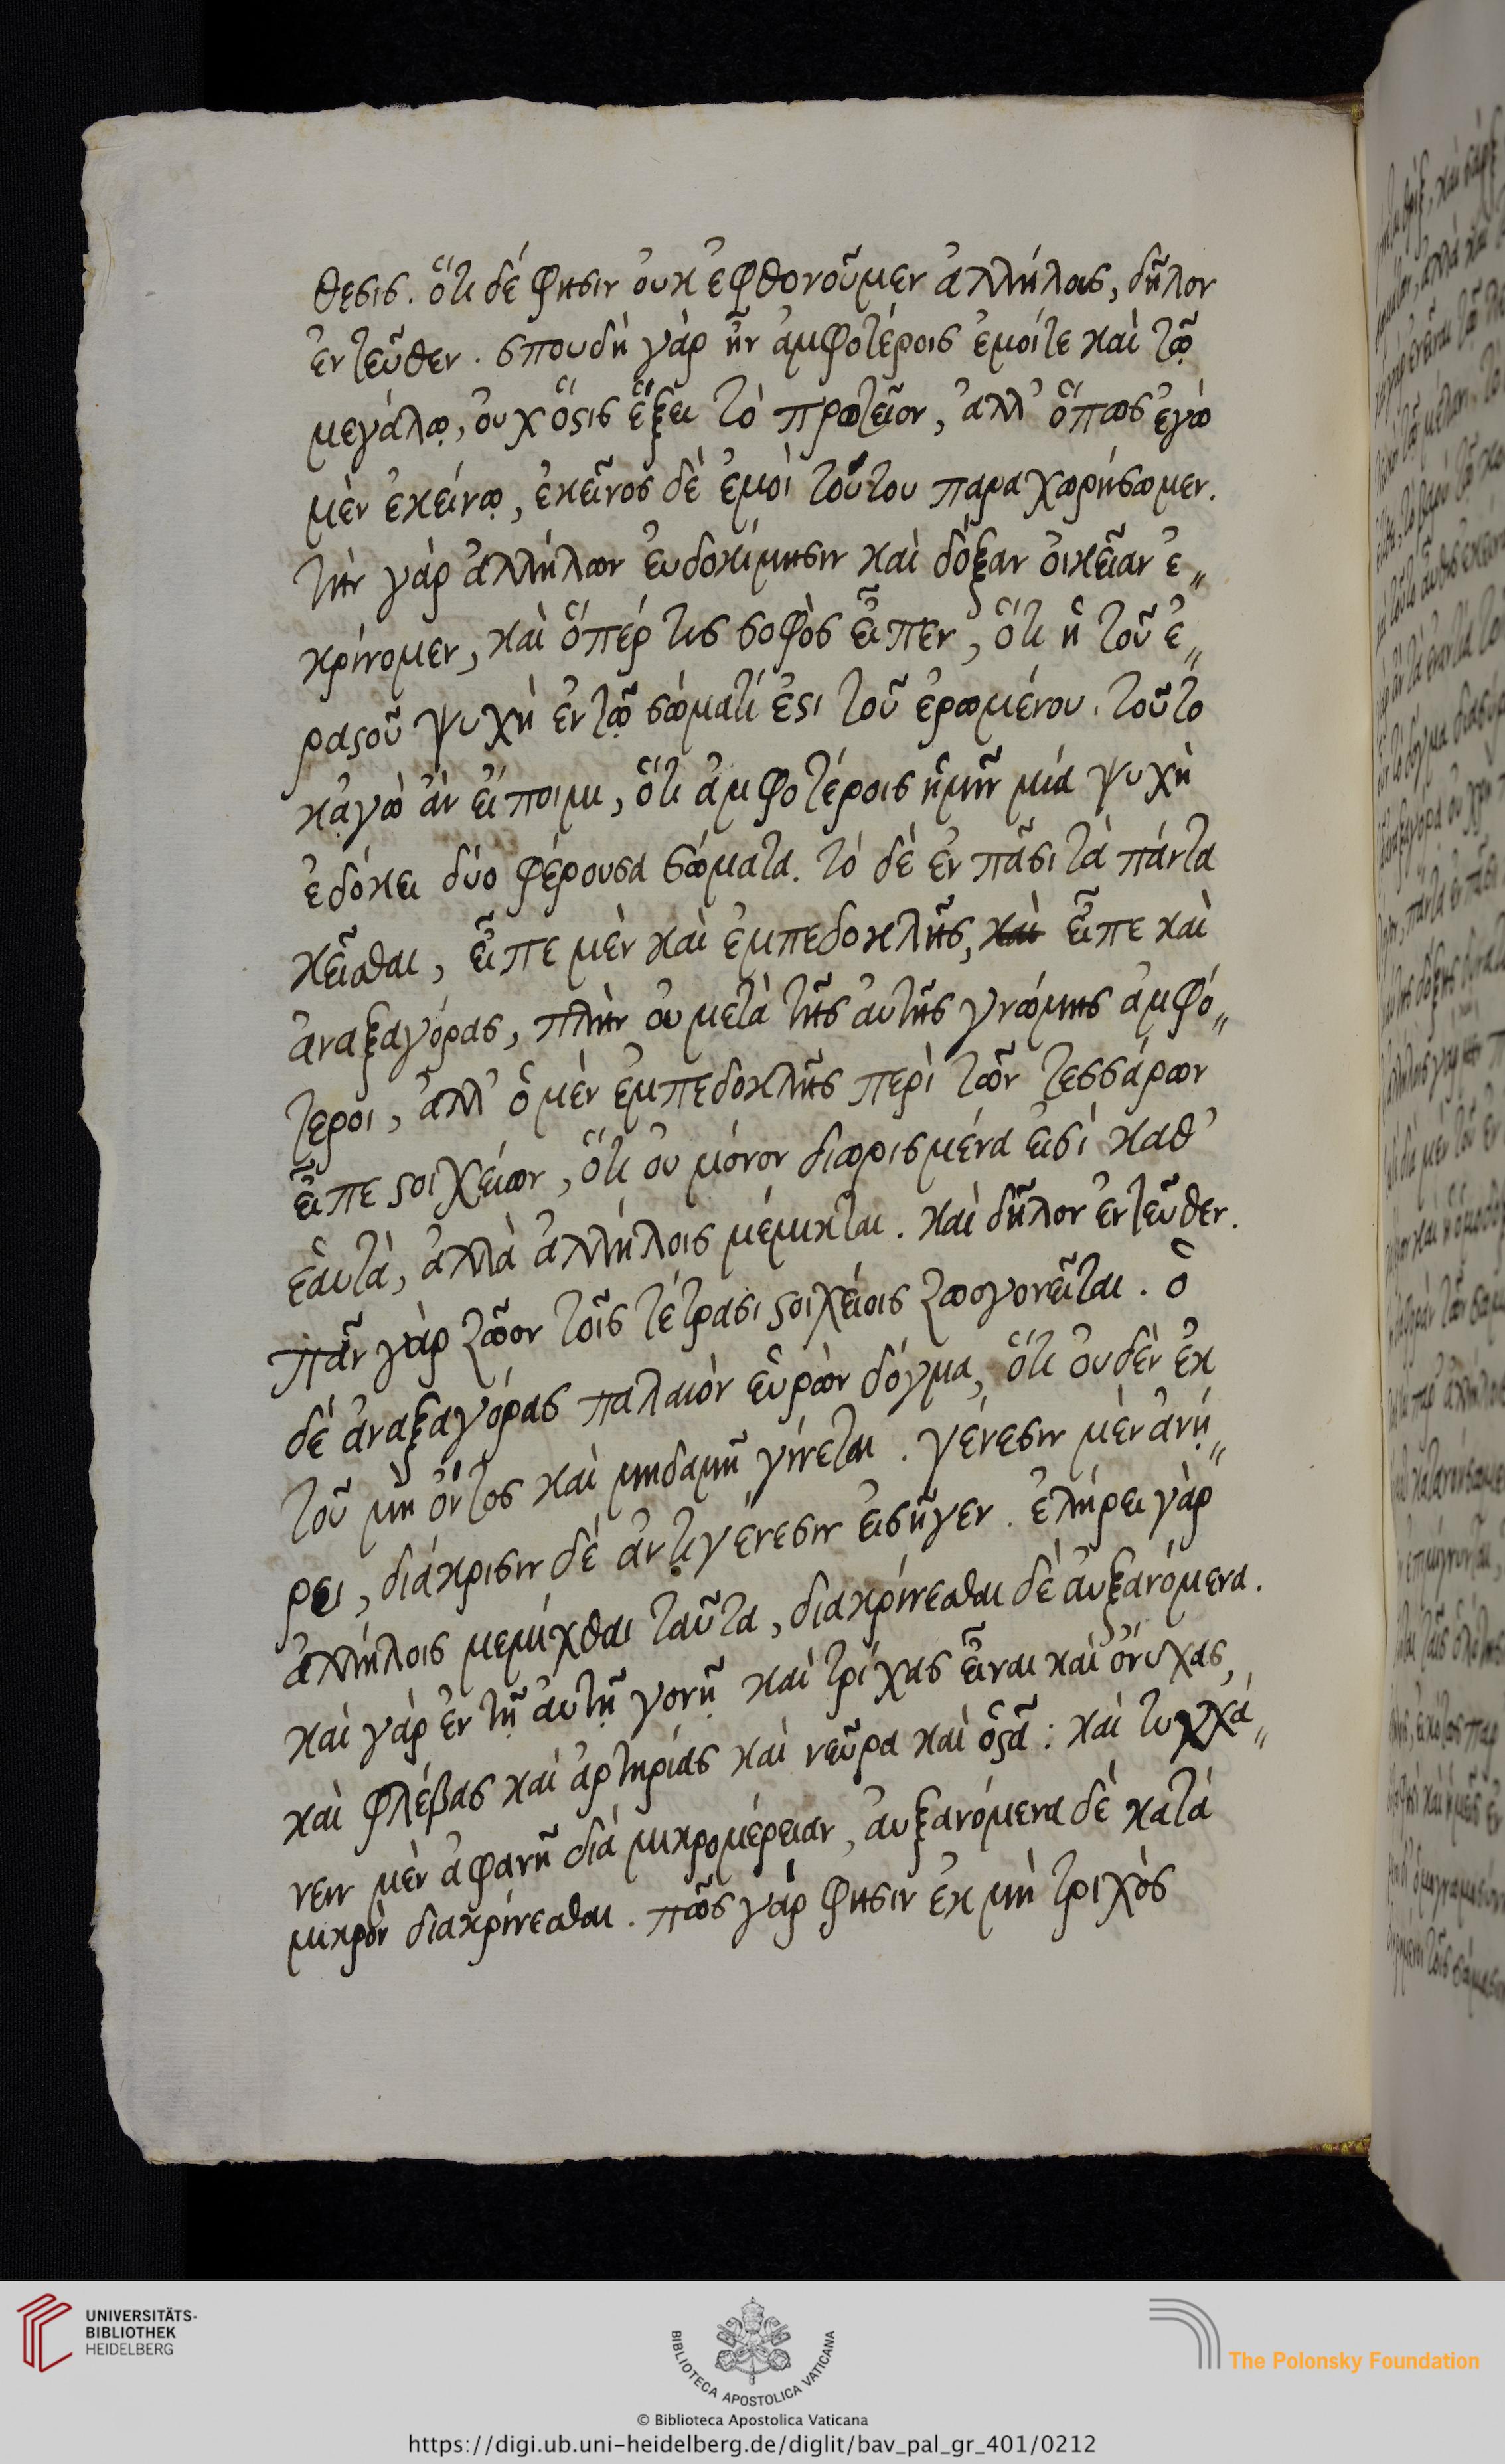 θεσις. ὅτι δέ φησιν οὐκ ἐφθονοῦμεν ἀλλήλοις, δῆλον
ἐντεῦθεν. σπουδὴ γὰρ ἦν ἀμφοτέροις ἐμοίτε καὶ τῷ
μεγάλῳ, οὐχ ὅϛις ἕξει τὸ πρωτεῖον, ἀλλ' ὅπως ἐγὼ
μὲν ἐκείνῳ, ἐκεῖνος δὲ ἐμοὶ τούτου παραχωρήσωμεν.
τὴν γὰρ ἀλλήλων εὐδοκίμησιν καὶ δόξαν οἰκείαν ἐ〃
κρίνομεν, καὶ ὅπέρ τις σοφὸς εἶπεν, ὅτι ἡ τοῦ ἐ〃
ραϛοῦ ψυχὴ ἐν τῷ σώματί ἐϛι τοῦ ἐρωμένου. τοῦτο
κᾀγὼ ἂν εἴποιμι, ὅτι ἀμφοτέροις ἡμῖν μία ψυχὴ
ἐδόκει δύο φέρουσα σώματα. τὸ δὲ ἐν πᾶσι τὰ πάντα
κεῖσθαι, εἶπε μὲν καὶ ἐμπεδοκλῆς, καὶ εἶπε καὶ
ἀναξαγόρας, πλὴν οὐ μετὰ τῆς αὐτῆς γνώμης ἀμφό〃
τεροι, ἀλλ' ὁ μὲν ἐμπεδοκλῆς περὶ τῶν τεσσάρων
εἶπε ϛοιχείων, ὅτι οὐ μόνον διωρισμένα εἰσὶ καθ'
ἑαυτὰ, ἀλλὰ ἀλλήλοις μέμικται. καὶ δῆλον ἐντεῦθεν.
πᾶν γὰρ ζῶον τοῖς τέτρασι ϛοιχείοις ζωογονεῖται. ὁ
δὲ ἀναξαγόρας παλαιὸν εὑρὼν δόγμα, ὅτι οὐδὲν ἐκ
τοῦ μὴ ὄντος καὶ μηδαμῆ γίνεται. γένεσιν μὲν ἀνῄ〃
ρει, διάκρισιν δὲ ἀντι γένεσιν εἰσῆγεν. ἐλήρει γὰρ
ἀλλήλοις μεμίχθαι ταῦτα, διακρίνεσθαι δὲ αὐξανόμενα.
καὶ γὰρ ἐν τῇ αὐτῇ γονῇ καὶ τρίχας εἶναι καὶ ὄνυχας,
καὶ φλέβας καὶ ἀρτηρίας καὶ νεῦρα καὶ ὀϛᾶ: καὶ τυγχά〃
νειν μὲν ἀφανῆ διὰ μικρομέρειαν, αὐξανόμενα δὲ κατὰ
μικρὸν διακρίνεσθαι. πῶς γάρ φησιν ἐκ μὴ τριχὸς
UNIVERSITÄTS-
BIBLIOTHEK
HEIDELBERG
BIBLIOTECA APOSTOLICA VATICANA
The Polonsky Foundation
© Biblioteca Apostolica Vaticana
https://digi.ub.uni-heidelberg.de/diglit/bav_pal_gr_401/0212